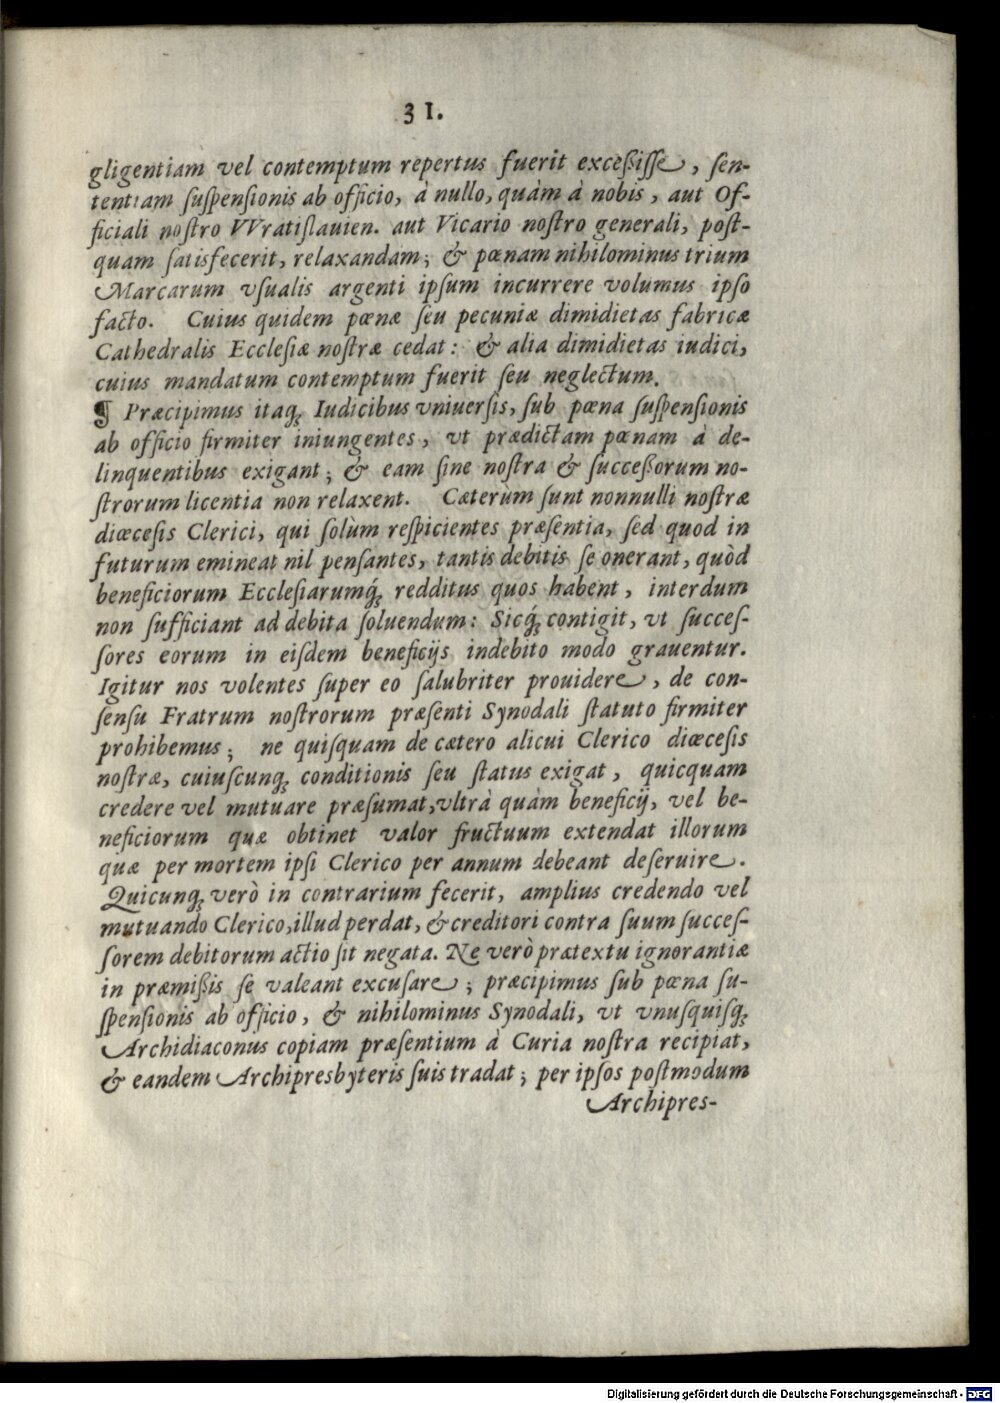 31.
gligentiam vel contemptum repertus fuerit exceßiſſe, ſen-
tentiam ſuſpenſionis ab officio, à nullo, quàm à nobis, aut Of-
ficiali noſtro VVratiſlauien. aut Vicario noſtro generali, poſt-
quam ſatisfecerit, relaxandam; & pœnam nihilominus trium
Marcarum vſualis argenti ipſum incurrere volumus ipſo
facto. Cuius quidem pœnæ ſeu pecuniæ dimidietas fabricæ
Cathedralis Eccleſiæ noſtræ cedat: & alia dimidietas iudici,
cuius mandatum contemptum fuerit ſeu neglectum.
¶ Præcipimus itaq; Iudicibus vniuerſis, ſub pœna ſuſpenſionis
ab officio firmiter iniungentes, vt prædictam pœnam à de-
linquentibus exigant; & eam ſine noſtra & ſucceßorum no-
ſtrorum licentia non relaxent. Cæterùm ſunt nonnulli noſtræ
diœceſis Clerici, qui ſolùm reſpicientes præſentia, ſed quod in
futurum emineat nil penſantes, tantis debitis ſe onerant, quòd
beneficiorum Eccleſiarumq́; redditus quos habent, interdum
non ſufficiant ad debita ſoluendum: Sicq́; contigit, vt ſucceſ-
ſores eorum in eiſdem beneficijs indebito modo grauentur.
Igitur nos volentes ſuper eo ſalubriter prouidere, de con-
ſenſu Fratrum noſtrorum præſenti Synodali ſtatuto firmiter
prohibemus; ne quiſquam de cætero alicui Clerico diœceſis
noſtræ, cuiuſcunq; conditionis ſeu ſtatus exigat, quicquam
credere vel mutuare præſumat, vltrà quàm beneficij, vel be-
neficiorum quæ obtinet valor fructuum extendat illorum
quæ per mortem ipſi Clerico per annum debeant deſeruire.
Quicunq; verò in contrarium fecerit, amplius credendo vel
mutuando Clerico, illud perdat, & creditori contra ſuum ſucceſ-
ſorem debitorum actio ſit negata. Ne verò prætextu ignorantiæ
in præmißis ſe valeant excuſare; præcipimus ſub pœna ſu-
ſpenſionis ab officio, & nihilominus Synodali, vt vnuſquiſq;
Archidiaconus copiam præſentium à Curia noſtra recipiat,
& eandem Archipresbyteris ſuis tradat; per ipſos poſtmodum
Archipres-
Digitalisierung gefördert durch die Deutsche Forschungsgemeinschaft - DFG